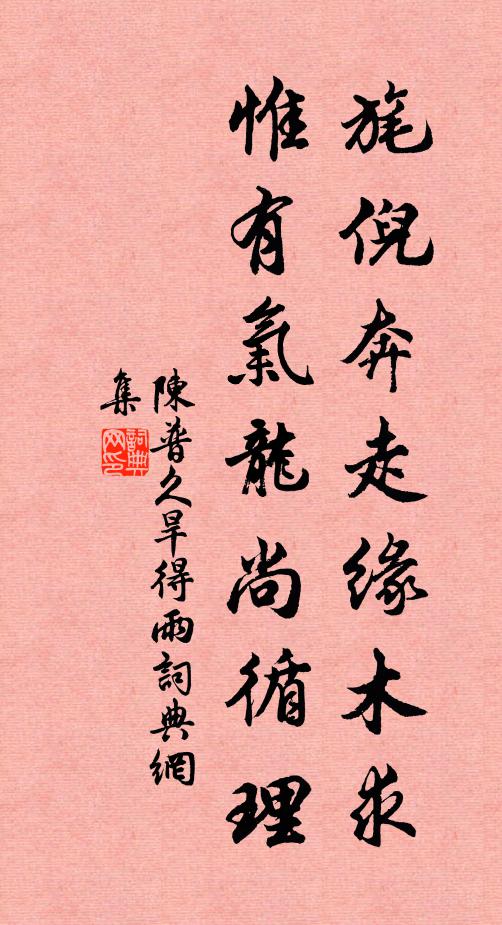 旄倪奔走缘木求
惟有氣龍尚循理
陳普久旱得雨詞典網
集
詞典
网印